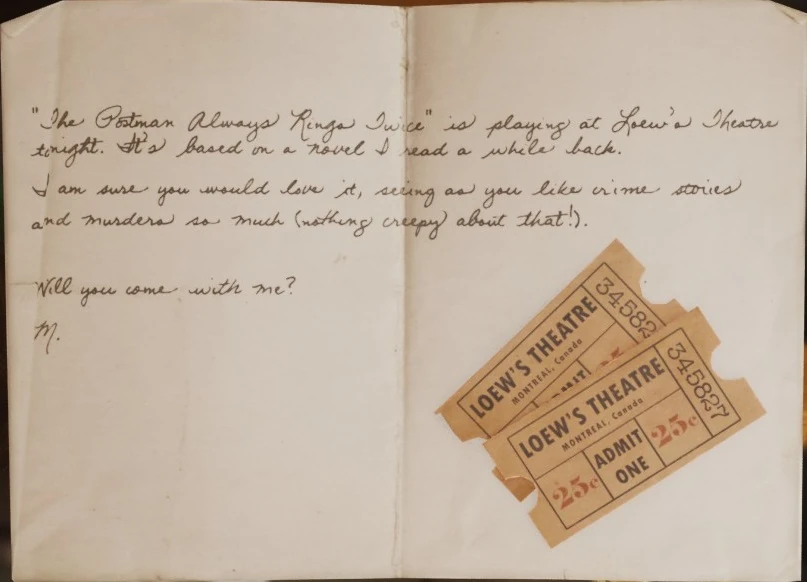 "The Postman Always Rings Twice" is playing at Loew's Theatre
tonight. It's based on a novel I read a while back.
I am sure you would love it, seeing as you like crime stories
and murders so much (nothing creepy about that!).
Will you come with me?
M.
LOEW'S THEATRE
MONTREAL, Canada
34582
LOEW'S THEATRE
MONTREAL, Canada
25c
ADMIT
ONE
25c
345827